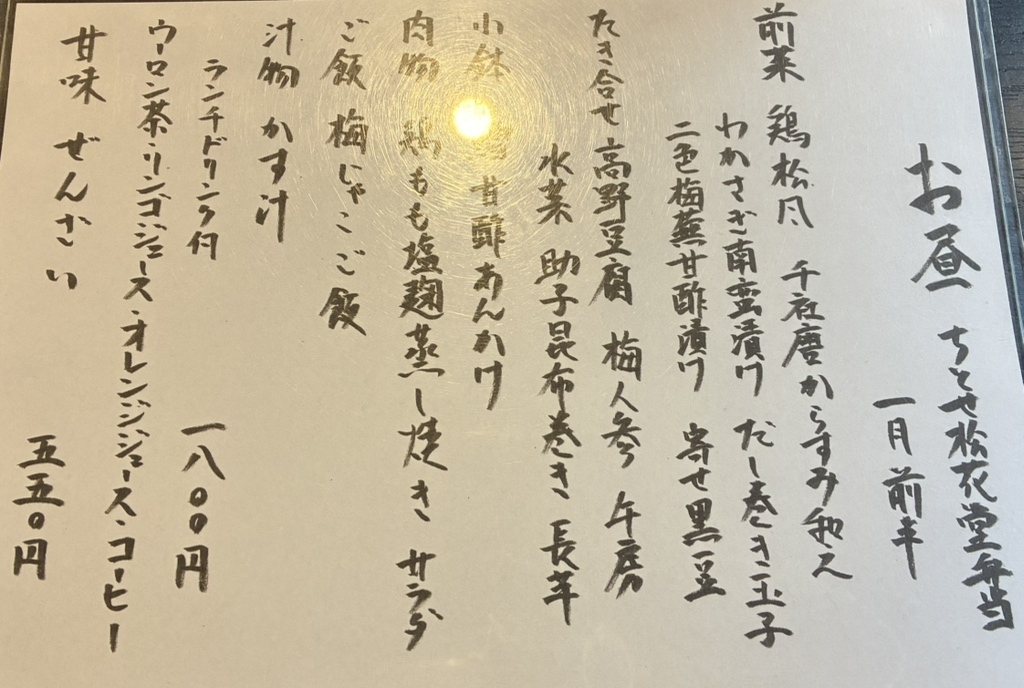 お昼 ちとせ松花堂弁当
一月前半
前菜 鶏松風 千社唐からすみ和え
わかさぎ南蛮漬け だし巻き玉子
二色梅蕪甘酢漬け 寄せ黒豆
たき合せ 高野豆腐 梅人参 午房
水菜 助子昆布巻き 長芋
小鉢 甘酢あんかけ
肉物 鶏もも塩麹蒸し焼き サラダ
ご飯 梅じゃこご飯
汁物 かす汁
一八〇〇円
ランチドリンク付
ウーロン茶・リンゴジュース・オレンジジュース・コーヒー
甘味 ぜんざい
五五〇円